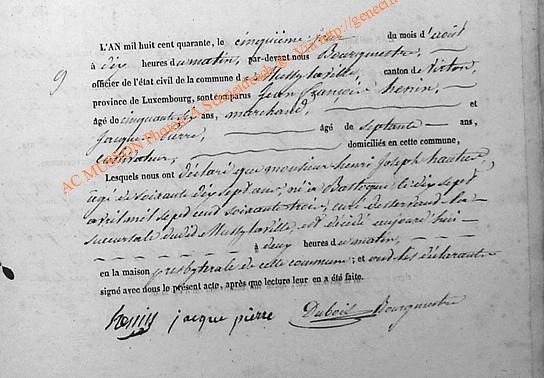 9
L'AN mil huit cent quarante, le cinquième jour du mois d'août
à dix heures du matin, par-devant nous Bourguestre,
officier de l'état civil de la commune de Mussy la ville, canton de Virton,
province de Luxembourg, sont comparus Jean François henin,
âgé de cinquante six ans, marchand, et
Jacque Pierre, âgé de septante ans,
cultivateur, domiciliés en cette commune,
Lesquels nous ont déclaré que monsieur henri Joseph
agé de soixante dix sept ans, né à le dix sept
avril mil sept cent soixante trois, curé desservant la
succursale dudit Mussy laville, est décédé aujourd'hui
à deux heures du matin,
en la maison presbytrale de cette commune; et ont les déclarants
signé avec nous le présent acte, après que lecture leur en a été faite.
henin jacque pierre Dubois Bourguestre
AC MUSSON Photos R. Via http://genecin